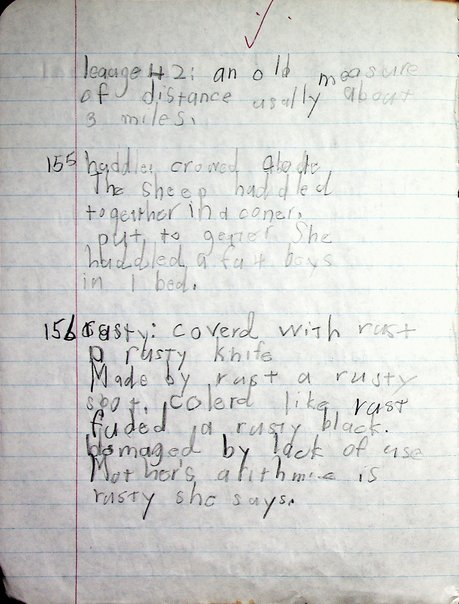 leauge # 2: an old measure
of distance usally about
3 miles.
155 huddle: crowed
The sheep huddled
togeither in a coner.
put to The She
huddled a four boys
in 1 bed.
156 rusty: coverd with rust
a rusty knife
Made by rust a rusty
spot. colerd like rust
faded a rusty black.
damaged by lack of use
Mother's arithmic is
rusty she says.